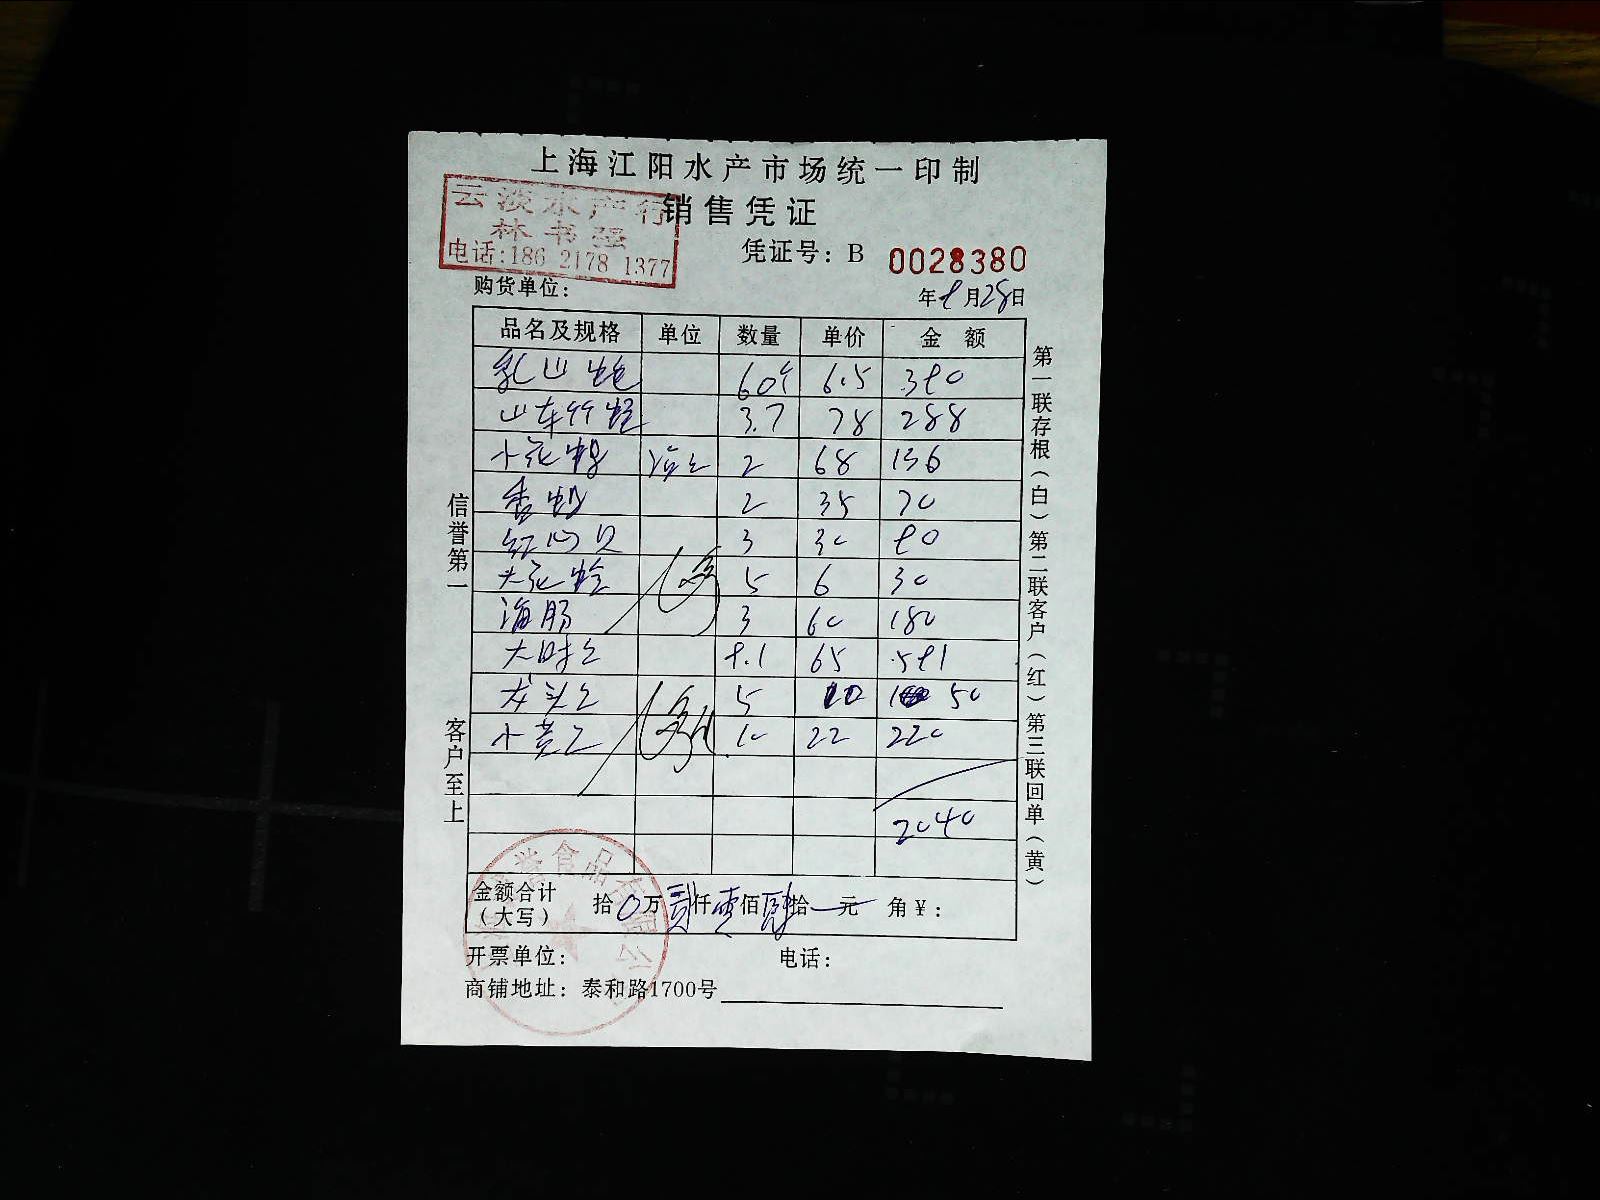 上海江阳水产市场统一印制
云淡水产行
林书强
电话:186 2178 1377
销售凭证
凭证号：B 0028380
购货单位：
年9月28日
品名及规格 单位 数量 单价 金额
乳山蚝 60个 6.5 390
山东竹蛏 3.7 78 288
小花螺 2 68 136
香螺 2 35 70
红心贝 3 30 90
大花蛤 5 6 30
海肠 3 60 180
9.1 65 591
龙头鱼 5 10 50
小黄鱼 10 22 220
2040
金额合计（大写） 拾0万贰仟零佰肆拾元 角￥：
开票单位： 电话：
商铺地址：泰和路1700号
信誉第一 客户至上
第一联存根（白）第二联客户（红）第三联回单（黄）
誉食品有限公